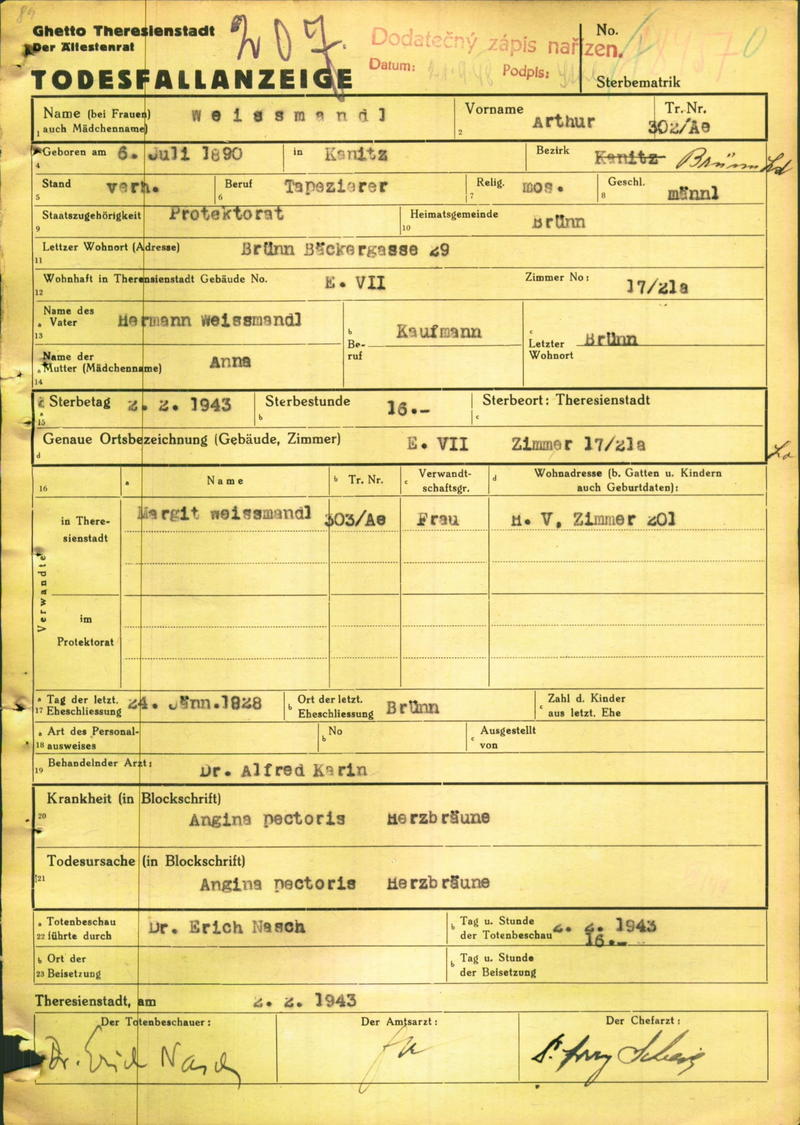 Ghetto Theresienstadt
Der Ältestenrat
TODESFALLANZEIGE
207.
Dodatečný zápis nařízen.
Datum: Podpis:
No.
Sterbematrik
Name (bei Frauen) auch Mädchenname) Weissmandl
1
Vorname Arthur
2
Tr. Nr. 302/Ae
Geboren am 6. Juli 1890 in Kanitz Bezirk Kanitz Brünn Ld
4
Stand verh. Beruf Tapezierer Relig. mos. Geschl. männl
5 6 7 8
Staatszugehörigkeit Protektorat Heimatsgemeinde Brünn
9 10
Lettzer Wohnort (Adresse) Brünn Bäckergasse 29
11
Wohnhaft in Theresienstadt Gebäude No. E. VII Zimmer No: 17/21a
12
Name des a Vater Hermann Weissmandl
13
b Be-ruf Kaufmann
c Letzter Wohnort Brünn
Name der a Mutter (Mädchenname) Anna
14
Sterbetag 2. 2. 1943 Sterbestunde 16.- Sterbeort: Theresienstadt
15 a b c
Genaue Ortsbezeichnung (Gebäude, Zimmer) E. VII Zimmer 17/21a
d
16 a Name b Tr. Nr. c Verwandt-schaftsgr. d Wohnadresse (b. Gatten u. Kindern auch Geburtdaten):
Verwandte
in There-sienstadt Margit Weissmandl 303/Ae Frau H. V, Zimmer 201
im Protektorat
a Tag der letzt. 17 Eheschliessung 24. Jänn.1928 b Ort der letzt. Eheschliessung Brünn c Zahl d. Kinder aus letzt. Ehe
a Art des Personal- 18 ausweises b No c Ausgestellt von
Behandelnder Arzt: Dr. Alfred Karin
19
Krankheit (in Blockschrift)
20
Angina pectoris Herzbräune
Todesursache (in Blockschrift)
21
Angina pectoris Herzbräune
a Totenbeschau 22 führte durch Dr. Erich Nasch b Tag u. Stunde der Totenbeschau 2. 2. 1943 16.-
b Ort der 23 Beisetzung b Tag u. Stunde der Beisetzung
Theresienstadt, am 2. 2. 1943
Der Totenbeschauer: Der Amtsarzt: Der Chefarzt:
Dr. Erich Nasch